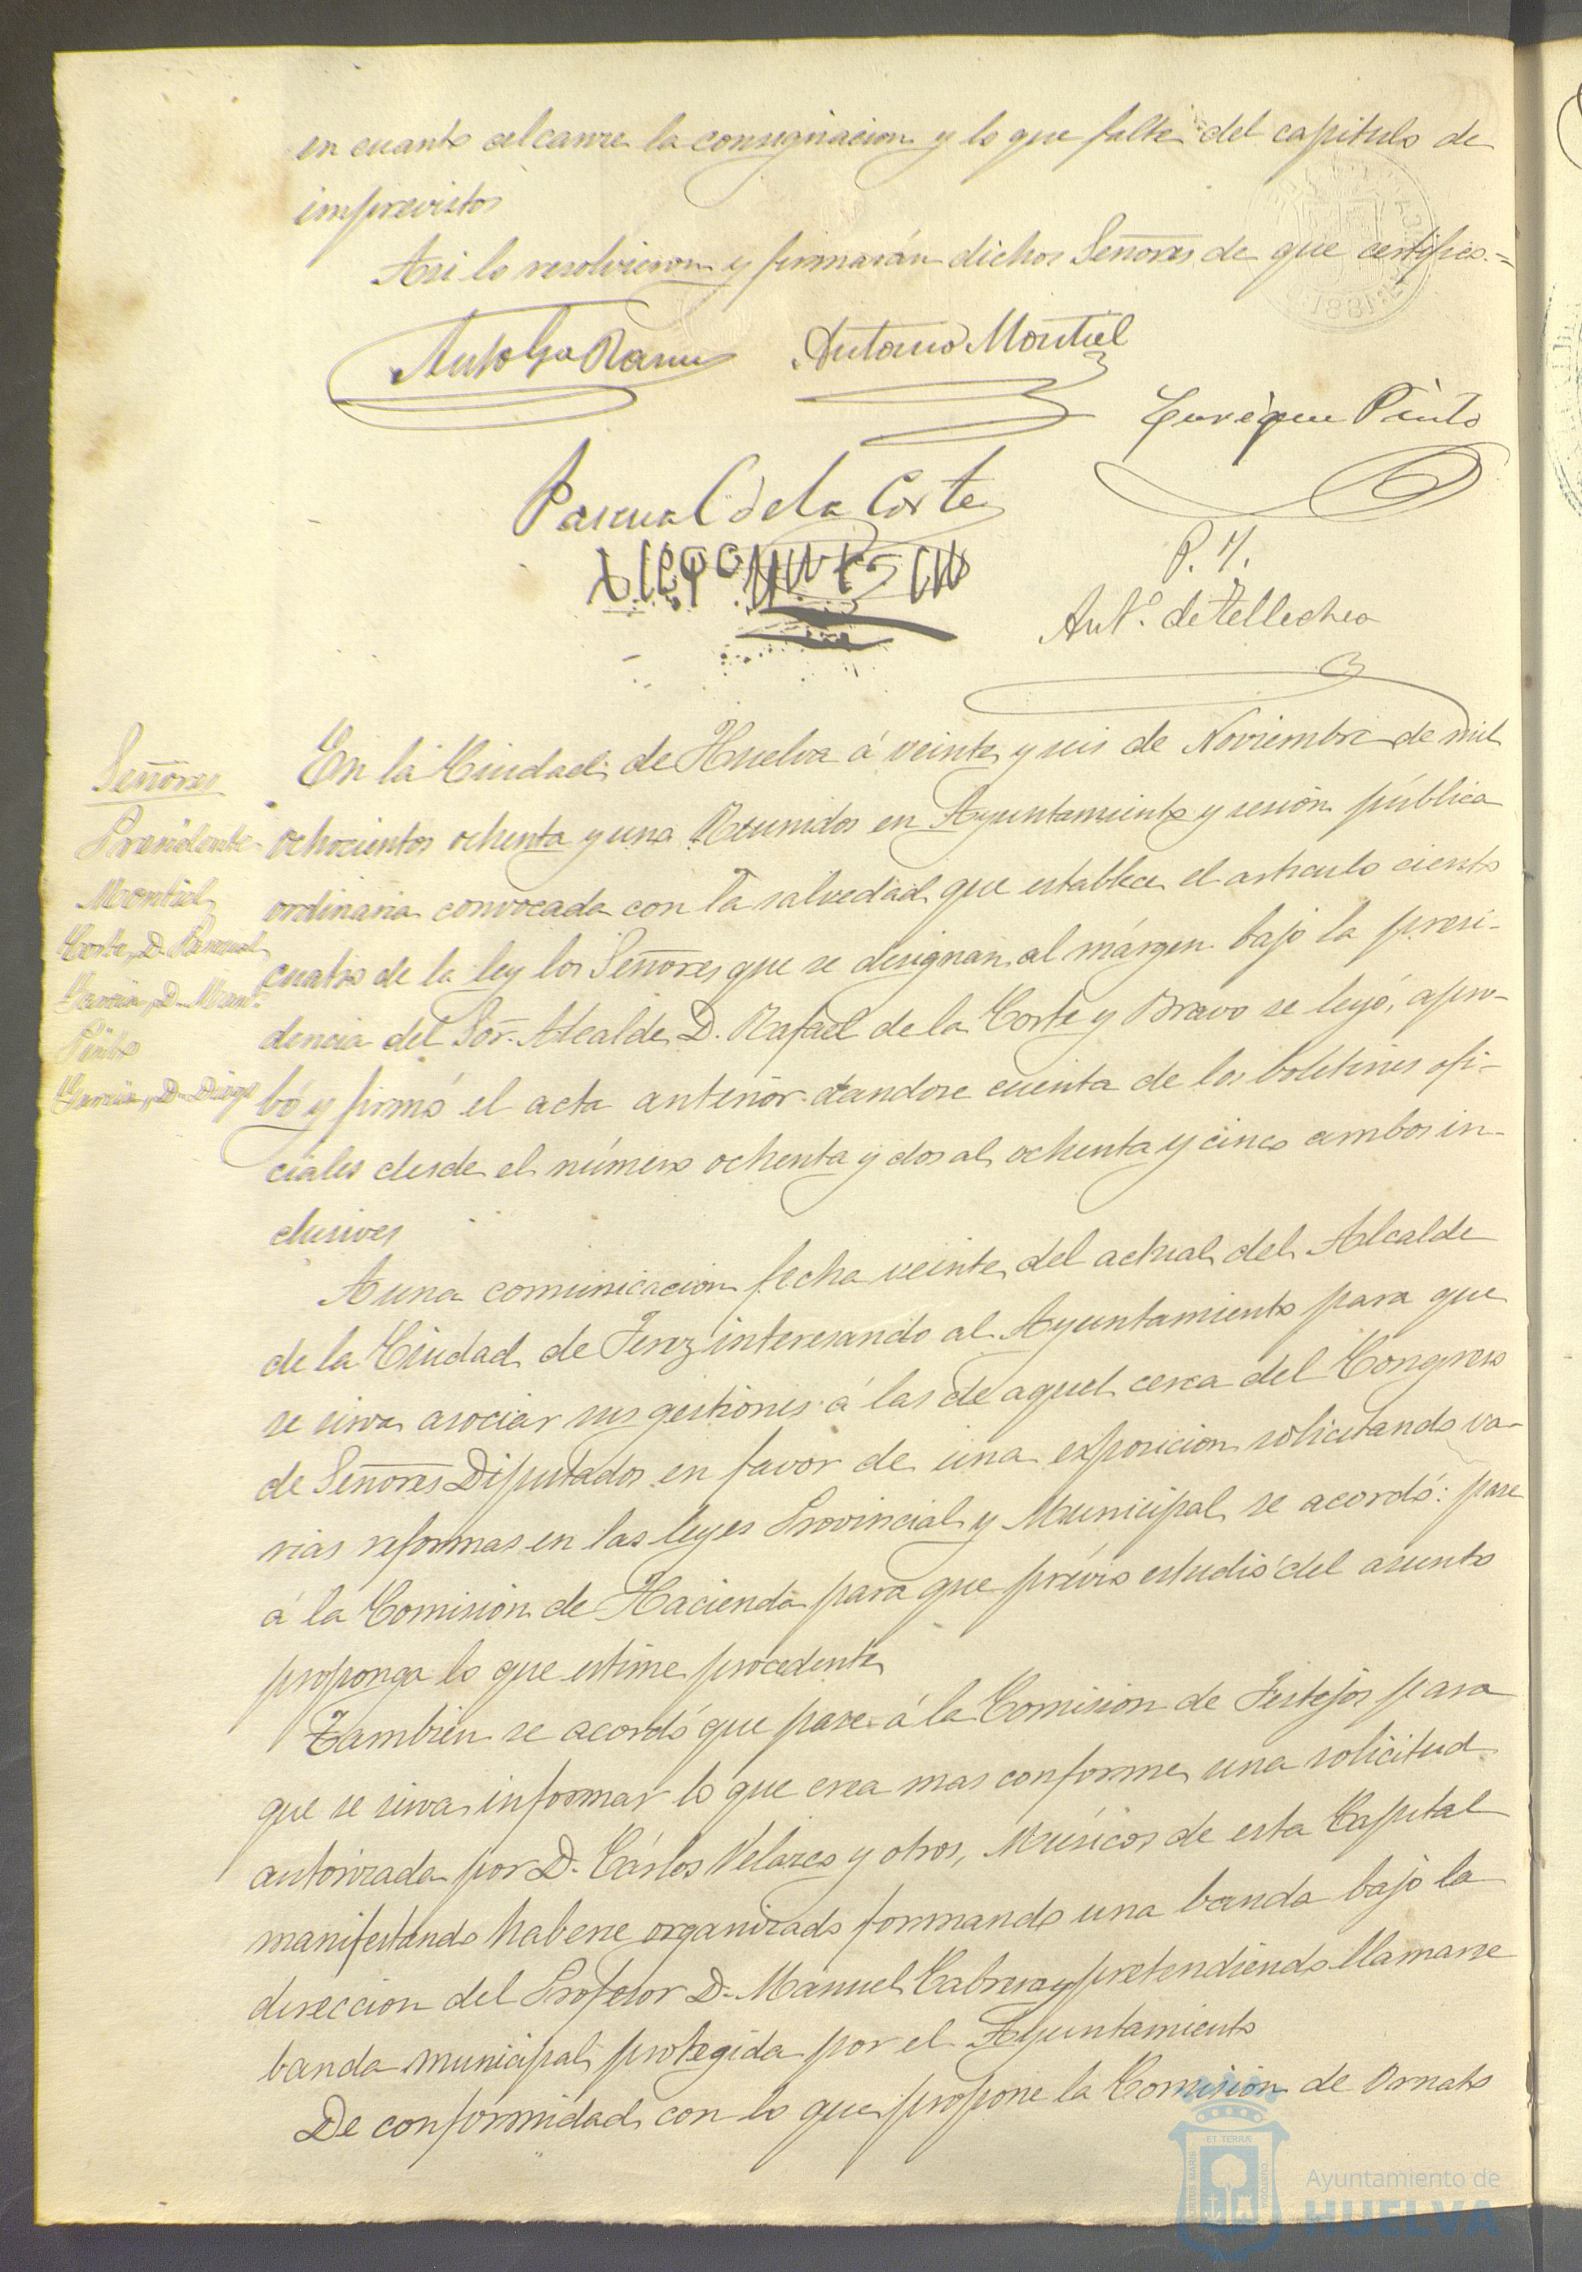 en cuanto alcance la consignacion y lo que falte del capitulo de
imprevistos
Asi lo resolvieron y firmarán dichos Señores de que certifico.=
Antonio Montiel
Enrique Pinto
Pascual C de la Corte
P. Y.
Ant.º de Tellechea
Señores
Presidente
Montiel
Corte, D. Pascual
Garcia, D. Man.
Pinto
Garcia, D. Diego
En la Ciudad de Huelva á veinte y seis de Noviembre de mil
ochocientos ochenta y uno Reunidos en Ayuntamiento y sesión pública
ordinaria convocada con la salvedad que establece el artículo ciento
cuatro de la ley los Señores que se designan al márgen bajo la presi-
dencia del Sor. Alcalde D. Rafael de la Corte y Bravo se leyó, apro-
bó y firmó el acta anterior dandose cuenta de los boletines ofi-
ciales desde el número ochenta y dos al ochenta y cinco ambos in-
clusives
A una comunicacion fecha veinte del actual del Alcalde
de la Ciudad de Jerez interesando al Ayuntamiento para que
se sirva asociar sus gestiones á las de aquel cerca del Congreso
de Señores Diputados en favor de una exposicion solicitando va-
rias reformas en las leyes Provincial y Municipal se acordó: pase
á la Comision de Hacienda para que prévio estudio del asunto
proponga lo que estime procedente
Tambien se acordó que pase á la Comision de Festejos para
que se sirva informar lo que crea mas conforme una solicitud
autorizada por D. Cárlos Velazco y otros, Músicos de esta Capital
manifestando haberse organizado formando una banda bajo la
direccion del Profesor D. Manuel Cabrera y pretendiendo llamarse
banda municipal protegida por el Ayuntamiento
De conformidad con lo que propone la Comision de Ornato
Ayuntamiento de
HUELVA